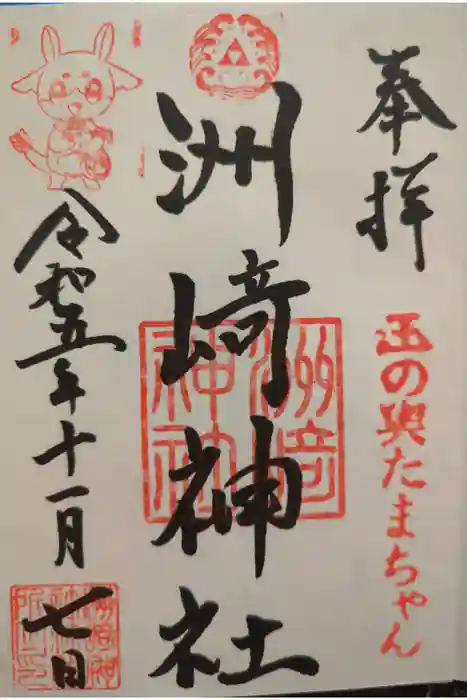 奉拝
玉の輿たまちゃん
洲崎神社
洲崎神社
令和五年十一月
七日